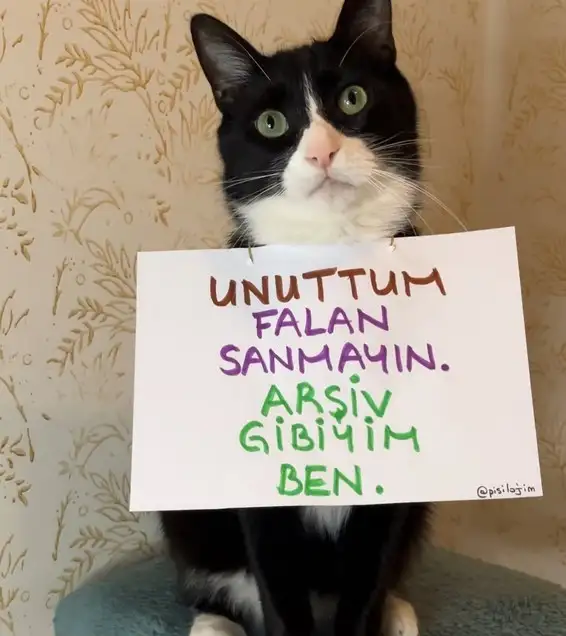 UNUTTUM
FALAN
SANMAYIN.
ARŞİV
GİBİYİM
BEN.
@pisilojim